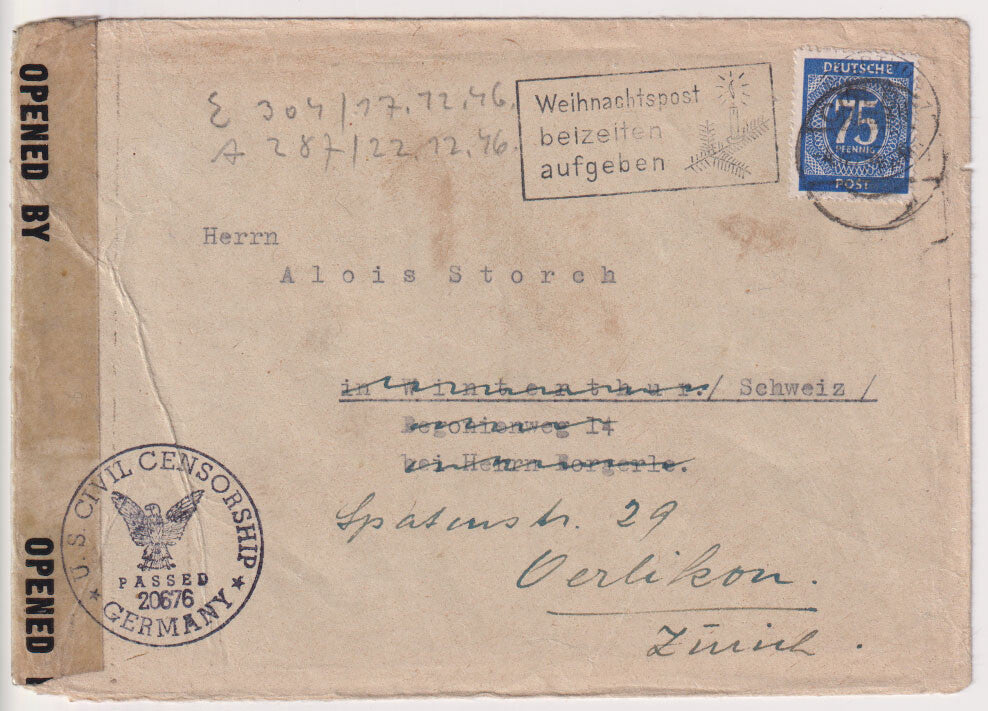 OPENED BY
OPENED
E 304/17.12.46.
A 287/22.12.46.
Weihnachtspost
beizeiten
aufgeben
DEUTSCHE
75
PFENNIG
POST
Herrn
Alois Storch
in Winterthur./ Schweiz /
Begonienweg 14
bei Herrn Borgerle.
Spatenstr. 29
Oerlikon.
Zürich.
U.S. CIVIL CENSORSHIP
PASSED
20676
GERMANY